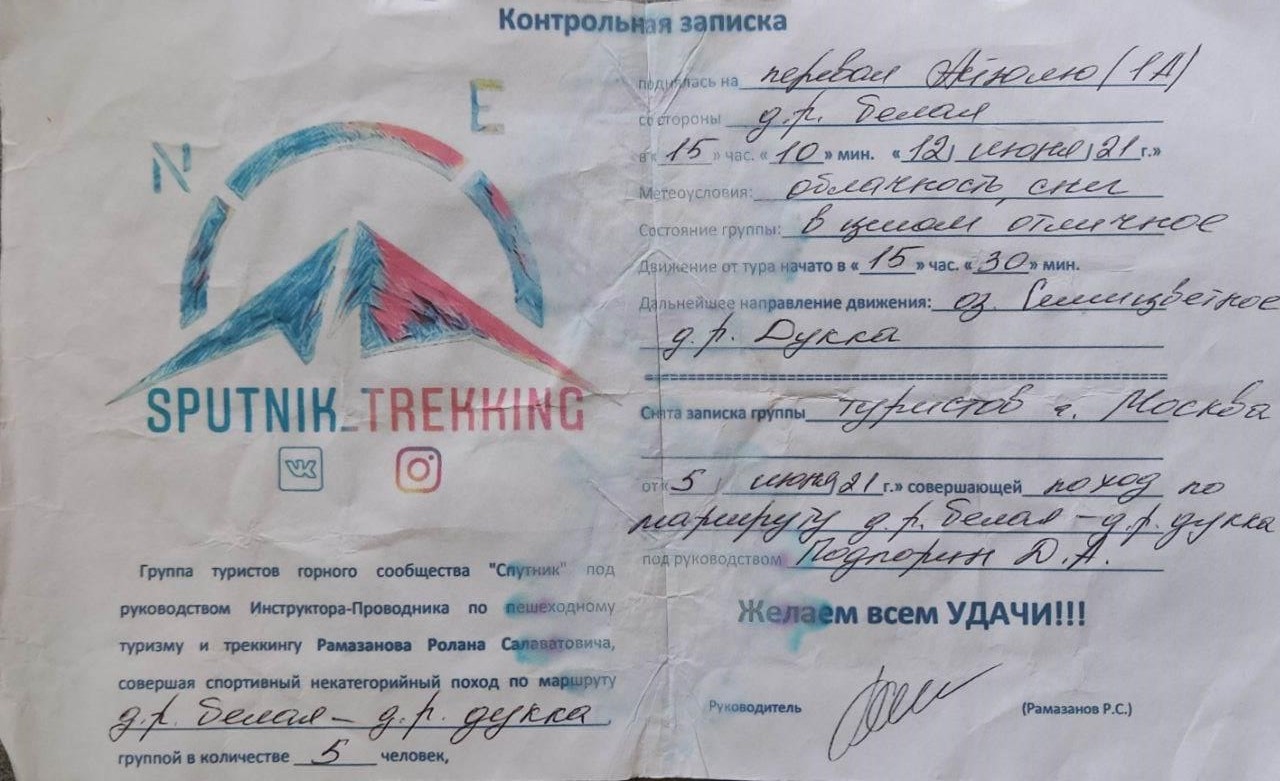 Контрольная записка
N
E
SPUTNIK_TREKKING
Группа туристов горного сообщества "Спутник" под
руководством Инструктора-Проводника по пешеходному
туризму и треккингу Рамазанова Ролана Салаватовича,
совершая спортивный некатегорийный поход по маршруту
д.р. Белая – д.р. Дукка
группой в количестве 5 человек,
поднялась на перевал (1А)
со стороны д.р. Белая
в « 15 » час. « 10 » мин. « 12 июня 21 г.»
Метеоусловия: облачность, снег
Состояние группы: в целом отличное
Движение от тура начато в « 15 » час. « 30 » мин.
Дальнейшее направление движения: оз. Семицветное
д.р. Дукка
Снята записка группы туристов г. Москва
от « 5 июня 21 г.» совершающей поход по
маршруту д.р. Белая – д.р. Дукка
под руководством Подпорин Д.А.
Желаем всем УДАЧИ!!!
Руководитель (Рамазанов Р.С.)